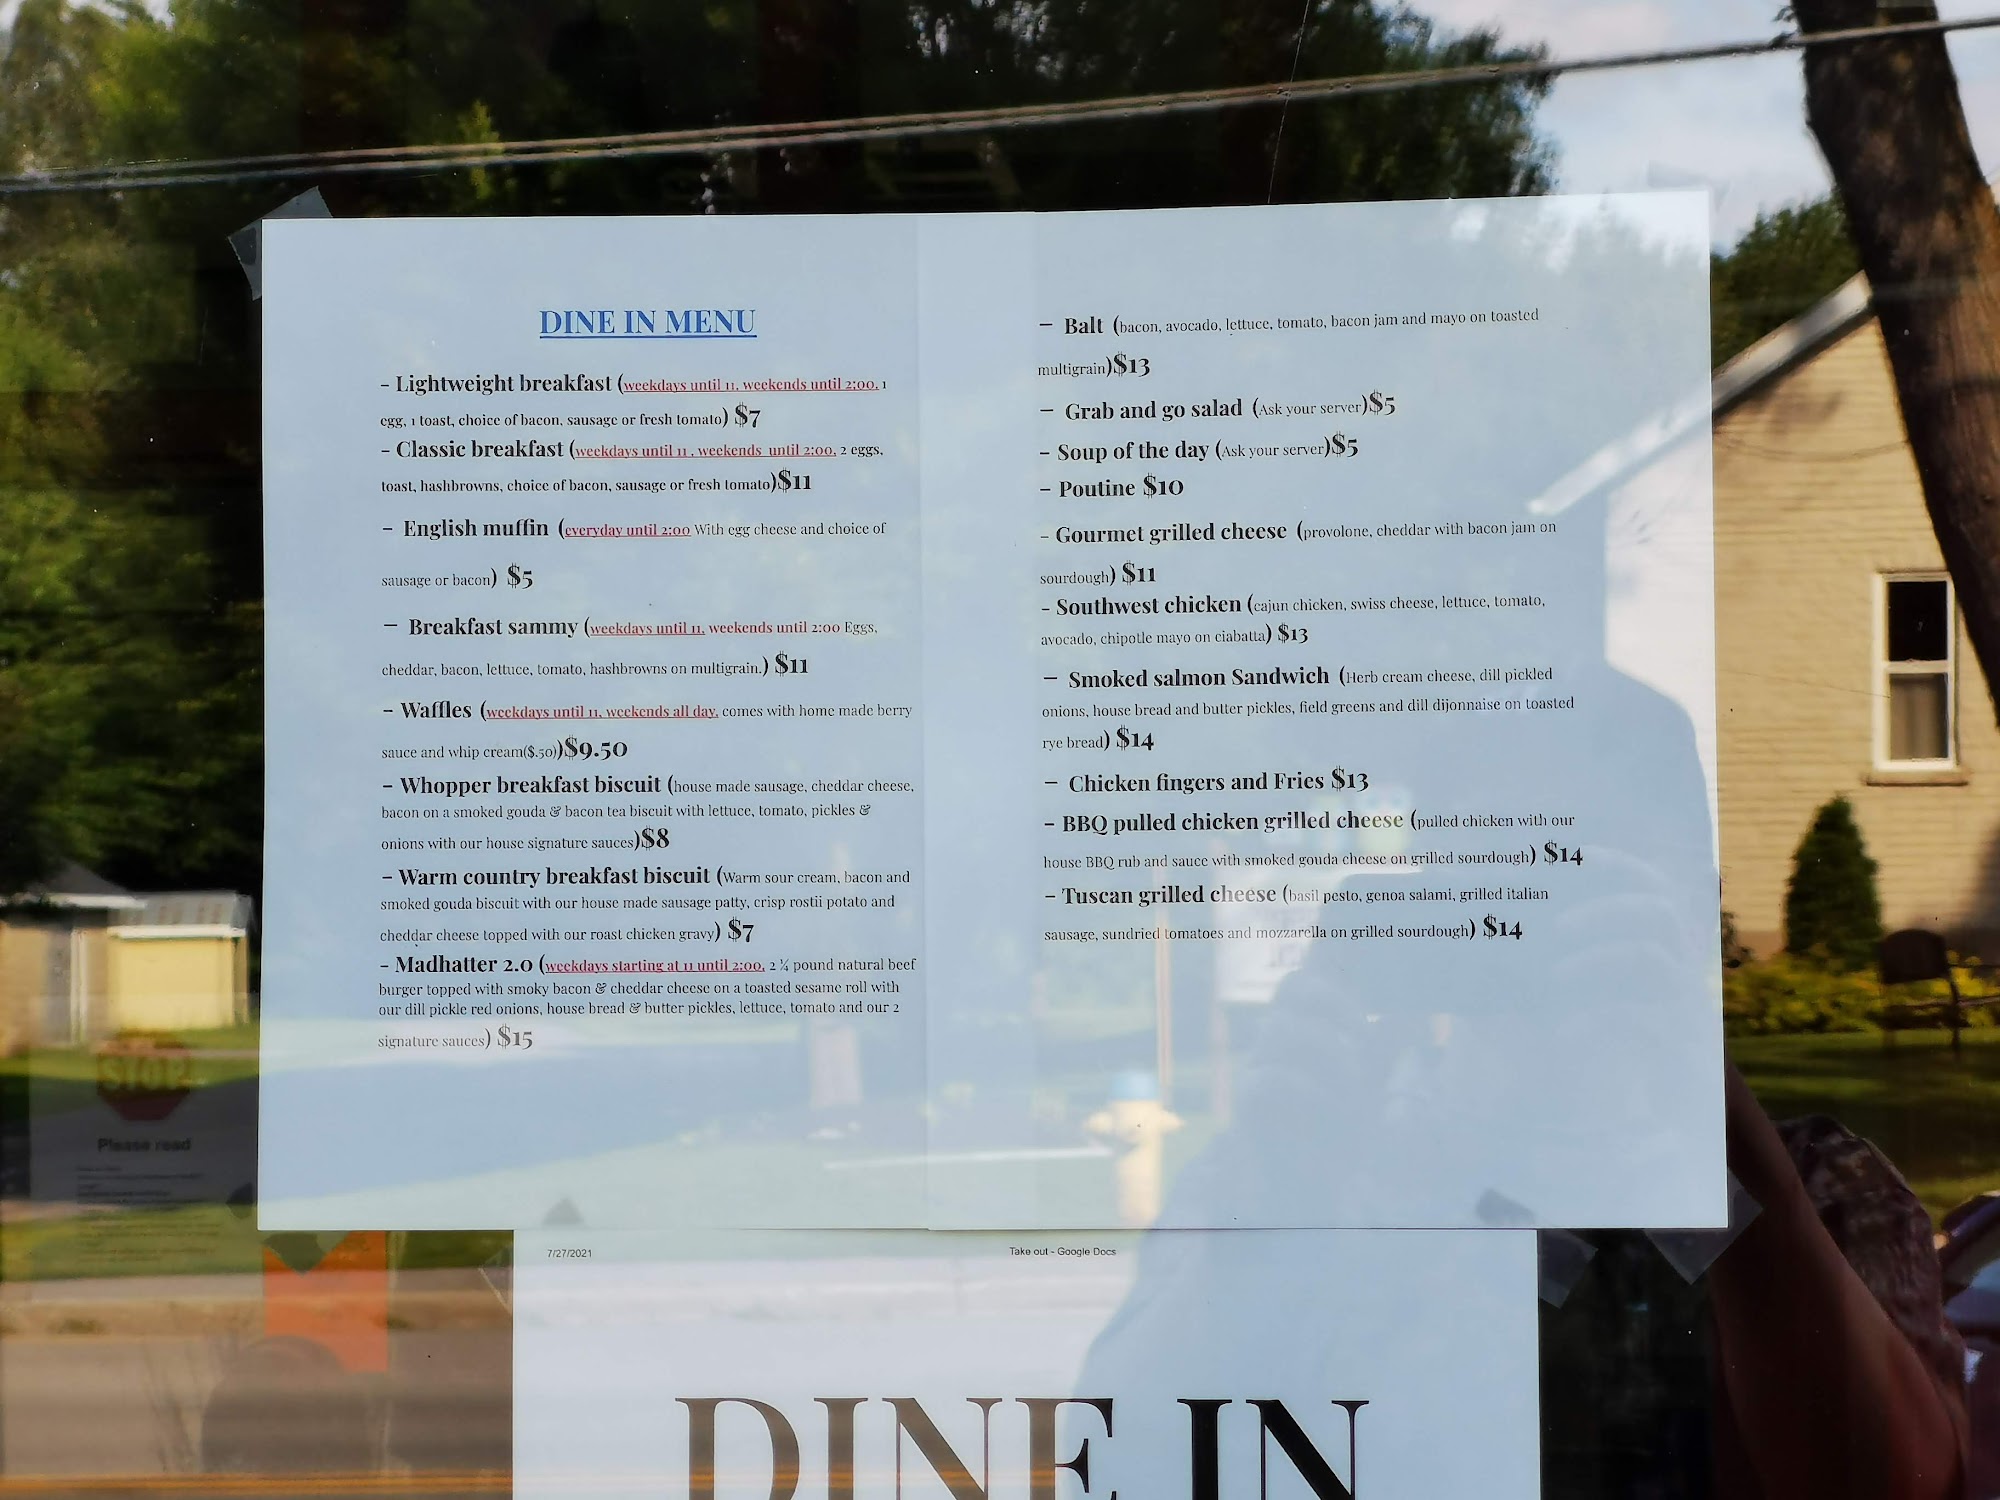 DINE IN MENU
– Lightweight breakfast (weekdays until 11, weekends until 2:00, 1
egg, 1 toast, choice of bacon, sausage or fresh tomato) $7
– Classic breakfast (weekdays until 11 , weekends until 2:00, 2 eggs,
toast, hashbrowns, choice of bacon, sausage or fresh tomato)$11
– English muffin (everyday until 2:00 With egg cheese and choice of
sausage or bacon) $5
– Breakfast sammy (weekdays until 11, weekends until 2:00 Eggs,
cheddar, bacon, lettuce, tomato, hashbrowns on multigrain.) $11
– Waffles (weekdays until 11, weekends all day, comes with home made berry
sauce and whip cream($.50))$9.50
– Whopper breakfast biscuit (house made sausage, cheddar cheese,
bacon on a smoked gouda & bacon tea biscuit with lettuce, tomato, pickles &
onions with our house signature sauces)$8
– Warm country breakfast biscuit (Warm sour cream, bacon and
smoked gouda biscuit with our house made sausage patty, crisp rostii potato and
cheddar cheese topped with our roast chicken gravy) $7
– Madhatter 2.0 (weekdays starting at 11 until 2:00, 2 ¼ pound natural beef
burger topped with smoky bacon & cheddar cheese on a toasted sesame roll with
our dill pickle red onions, house bread & butter pickles, lettuce, tomato and our 2
signature sauces) $15
– Balt (bacon, avocado, lettuce, tomato, bacon jam and mayo on toasted
multigrain)$13
– Grab and go salad (Ask your server)$5
– Soup of the day (Ask your server)$5
– Poutine $10
– Gourmet grilled cheese (provolone, cheddar with bacon jam on
sourdough) $11
– Southwest chicken (cajun chicken, swiss cheese, lettuce, tomato,
avocado, chipotle mayo on ciabatta) $13
– Smoked salmon Sandwich (Herb cream cheese, dill pickled
onions, house bread and butter pickles, field greens and dill dijonnaise on toasted
rye bread) $14
– Chicken fingers and Fries $13
– BBQ pulled chicken grilled cheese (pulled chicken with our
house BBQ rub and sauce with smoked gouda cheese on grilled sourdough) $14
– Tuscan grilled cheese (basil pesto, genoa salami, grilled italian
sausage, sundried tomatoes and mozzarella on grilled sourdough) $14
STOP
Please read
7/27/2021
Take out - Google Docs
DINE IN